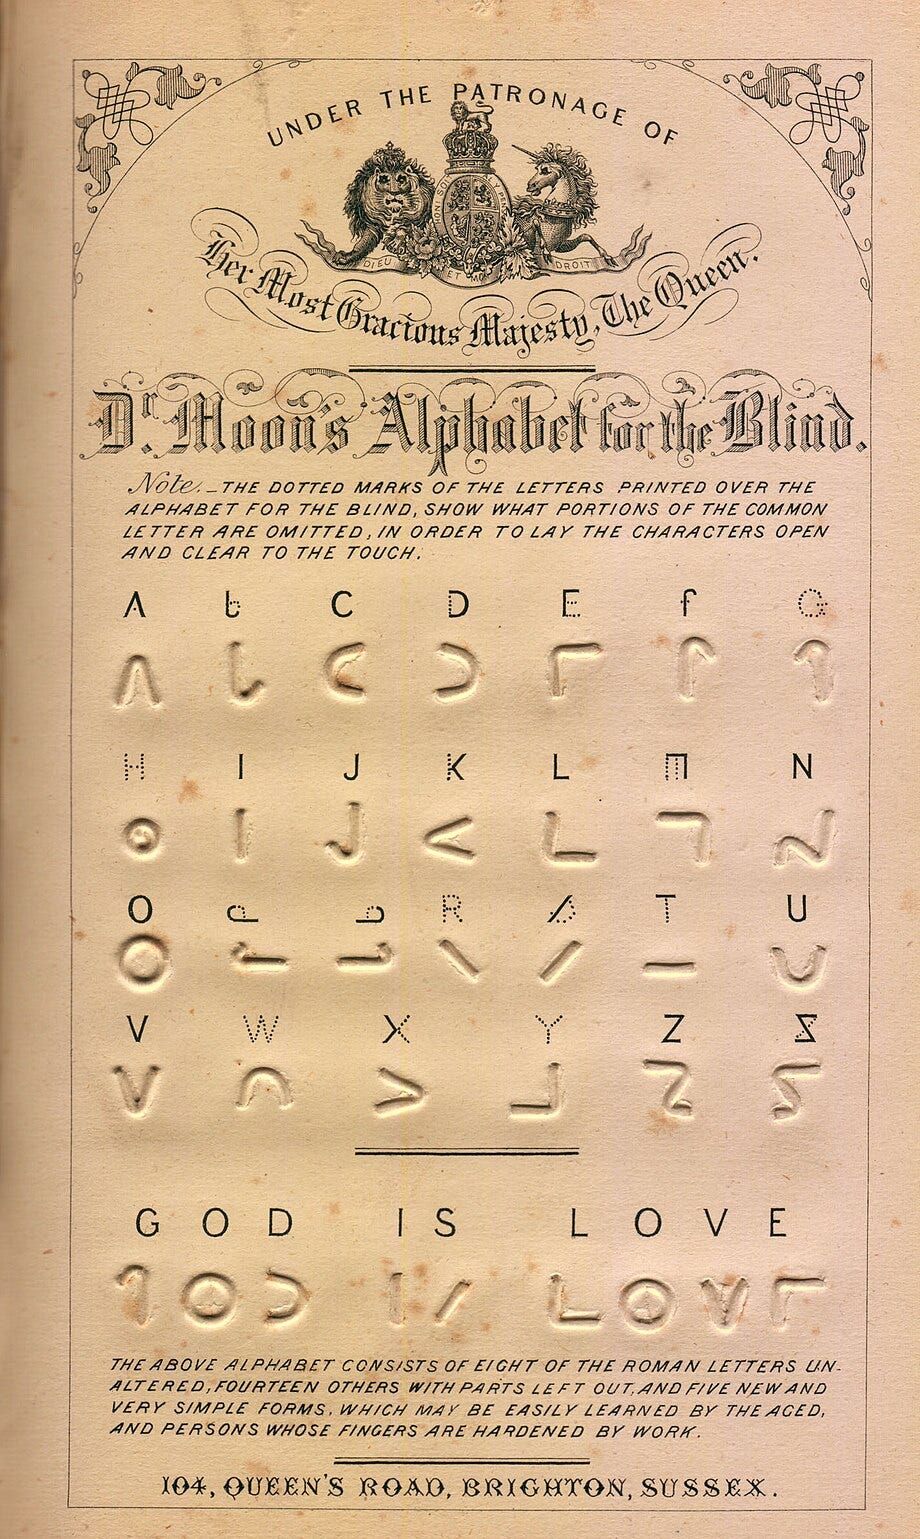 UNDER THE PATRONAGE OF
HONI SOI
DIEU ET MON DROIT
Her Most Gracious Majesty, The Queen.
Dr. Moon's Alphabet for the Blind.
Note._THE DOTTED MARKS OF THE LETTERS PRINTED OVER THE
ALPHABET FOR THE BLIND, SHOW WHAT PORTIONS OF THE COMMON
LETTER ARE OMITTED, IN ORDER TO LAY THE CHARACTERS OPEN
AND CLEAR TO THE TOUCH.
A b C D E f G
H I J K L M N
O P Q R S T U
V W X Y Z &
GOD IS LOVE
THE ABOVE ALPHABET CONSISTS OF EIGHT OF THE ROMAN LETTERS UN-
ALTERED, FOURTEEN OTHERS WITH PARTS LEFT OUT, AND FIVE NEW AND
VERY SIMPLE FORMS, WHICH MAY BE EASILY LEARNED BY THE AGED,
AND PERSONS WHOSE FINGERS ARE HARDENED BY WORK.
104, QUEEN'S ROAD, BRIGHTON, SUSSEX.